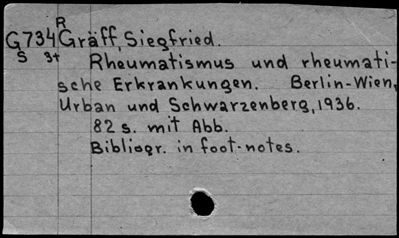 R
G734 Gräff, Siegfried.
S 3t
Rheumatismus und rheumati-
sche Erkrankungen. Berlin-Wien,
Urban und Schwarzenberg, 1936.
82 s. mit Abb.
Bibliogr. in foot-notes.